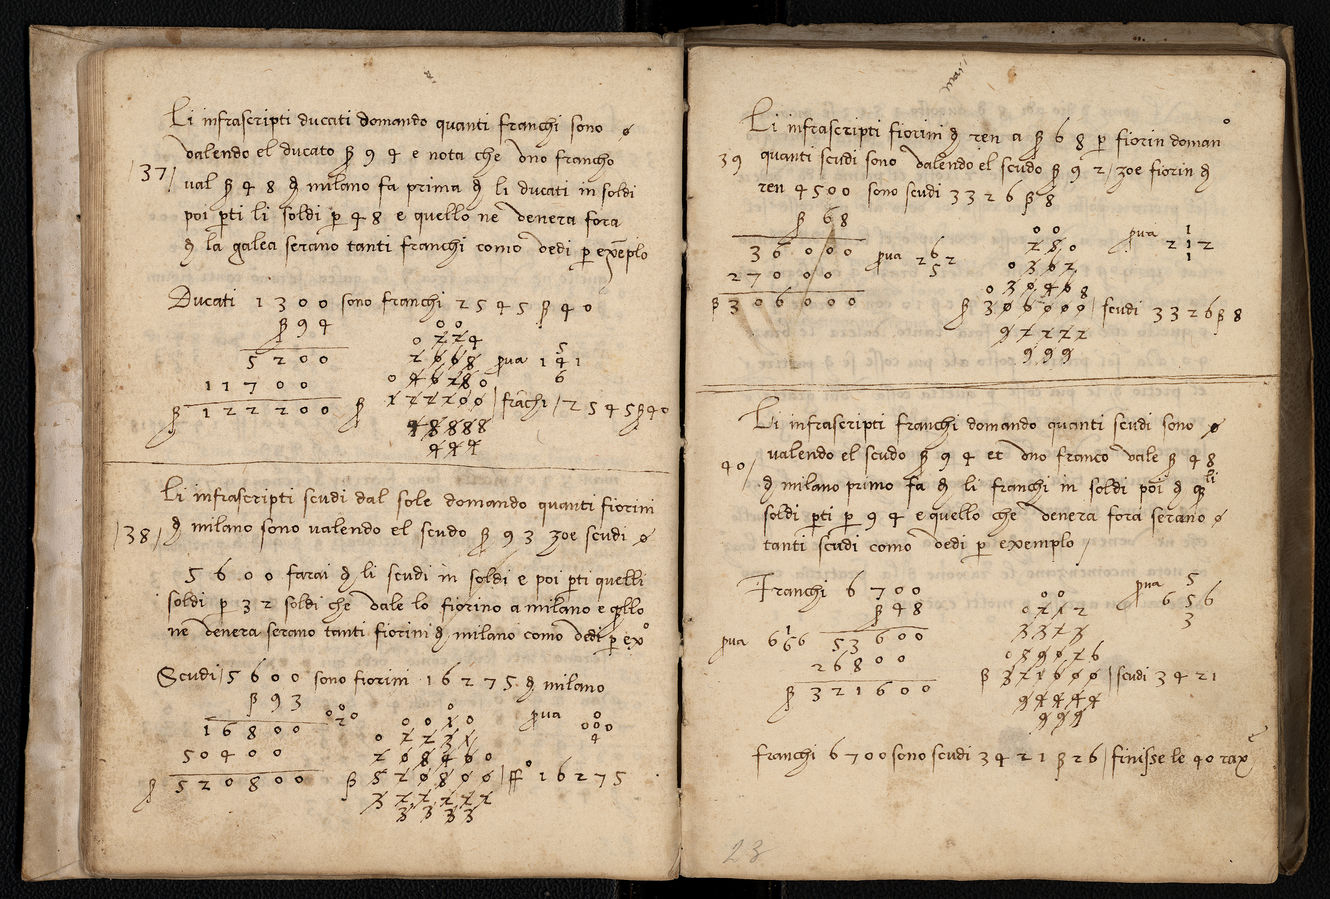 Li infrascripti ducati domando quanti franchi sono
valendo el ducato ß 9 4 e nota che uno francho
/37/ val ß 4 8 di milano fa prima di li ducati in soldi
poi pti li soldi p 48 e quello ne venera fora
di la galea serano tanti franchi como vedi p exeplo
Ducati 1 3 0 0 sono franchi 2 5 4 5 ß 4 0
ß 9 4
5 2 0 0
1 1 7 0 0
ß 1 2 2 2 0 0
0 0
0 2 2 4
2 6 6 8
0 4 6 2 8 0
ß 1 2 2 2 0 0 / frachi / 2 5 4 5 ß 4 0
4 8 8 8 8
4 4 4
pva 1 5 4 6 1
Li infrascripti scudi dal sole domando quanti fiorini
/38/ di milano sono valendo el scudo ß 9 3 zoe scudi
5 6 0 0 farai di li scudi in soldi e poi pti quelli
soldi p 3 2 soldi che vale lo fiorino a milano e qllo
ne venera serano tanti fiorini di milano como vedi p exo
Scudi / 5 6 0 0 sono fiorini 1 6 2 7 5 di milano
ß 9 3
1 6 8 0 0
5 0 4 0 0
ß 5 2 0 8 0 0
0 0 2 0
0 0 1 0
0 2 2 3 1
2 0 8 4 6 0
ß 5 2 0 8 0 0 / ffo 1 6 2 7 5
3 2 2 2 2 2
3 3 3 3
pva 0 0 0 0 4
Li infrascripti fiorini di ren a ß 6 8 p fiorin domano
39 quanti scudi sono valendo el scudo ß 9 2 / zoe fiorin di
ren 4 5 0 0 sono scudi 3 3 2 6 ß 8
ß 6 8
3 6 0 0 0
2 7 0 0 0
ß 3 0 6 0 0 0
pva 2 6 5 2
0 0
2 8 0
0 3 6 2
0 3 0 4 0 8
ß 3 0 6 0 0 0 / scudi 3 3 2 6 ß 8
9 2 2 2 2
9 9 9
pva 2 1 1 1 2
Li infrascripti franchi domando quanti scudi sono
40/ valendo el scudo ß 9 4 et uno franco vale ß 4 8
di milano primo fa di li franchi in soldi poi di qlli
soldi pti p 9 4 e quello che venera fora serano
tanti scudi como vedi p exemplo /
Franchi 6 7 0 0
ß 4 8
pva 6 1 6 6
5 3 6 0 0
2 6 8 0 0
ß 3 2 1 6 0 0
0 0
0 2 2 2
3 3 2 3
0 3 9 0 2 6
ß 3 2 1 6 0 0 / scudi 3 4 2 1
9 4 4 4 4
9 9 9
pva 6 5 5 3 6
franchi 6 7 0 0 sono scudi 3 4 2 1 ß 2 6 / finisse le 40 rax
23